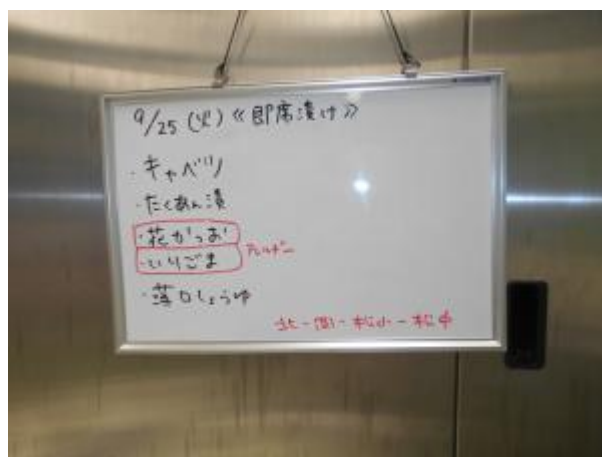 9/25 (火) 《即席漬け》
・キャベツ
・たくあん漬
・花かつお
・いりごま
アレルギー
・薄口しょうゆ
北-国-松小-松中